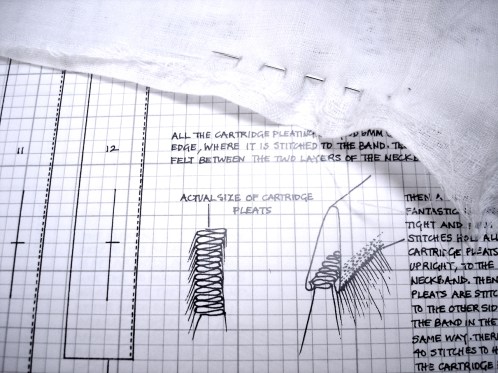 ALL THE CARTRIDGE PLEATING 6MM
EDGE, WHERE IT IS STITCHED TO THE BAND.
FELT BETWEEN THE TWO LAYERS OF THE
11
12
ACTUAL SIZE OF CARTRIDGE
PLEATS
THEN
FANTASTIC
TIGHT AND
STITCHES HOLD ALL
CARTRIDGE PLEATS
UPRIGHT, TO THE
NECKBAND. THEN
PLEATS ARE STITC
TO THE OTHER SID
THE BAND IN THE
SAME WAY. THER
40 STITCHES TO H
THE CARTRIDGE